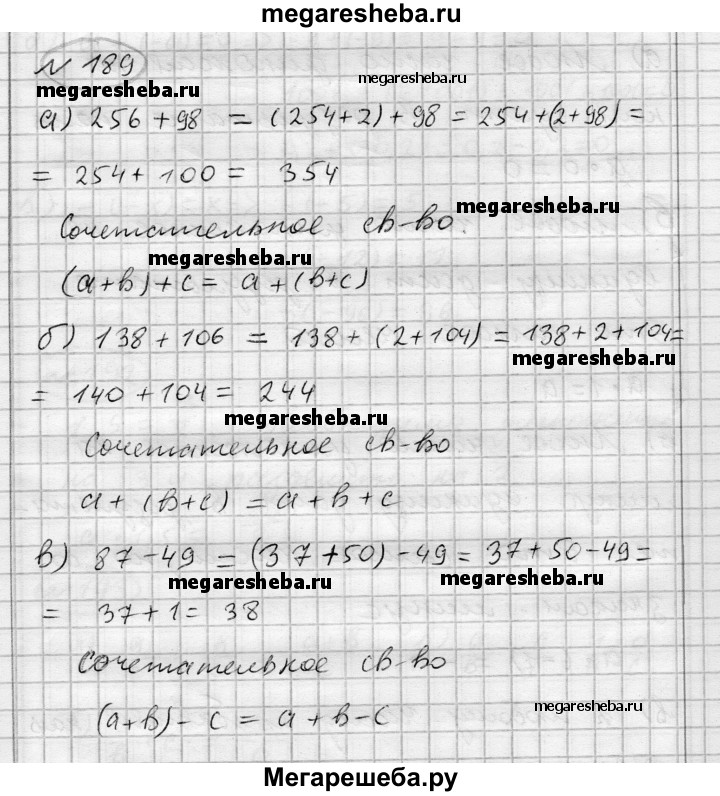 megaresheba.ru
№ 189
megaresheba.ru
megaresheba.ru
а) 256 + 98 = (254+2) + 98 = 254+(2+98) =
= 254 + 100 = 354
Сочетательное св-во.
megaresheba.ru
megaresheba.ru
(а+в)+с = а+(в+с)
б) 138 + 106 = 138 + (2+104) = 138+2+104=
megaresheba.ru
= 140 + 104 = 244
megaresheba.ru
Сочетательное св-во
а + (в+с) = а + в + с
в) 87 - 49 = (37+50) - 49 = 37+50-49=
megaresheba.ru
megaresheba.ru
= 37+1= 38
Сочетательное св-во
(а+в) - с = а + в - с
megaresheba.ru
Мегарешеба.ру